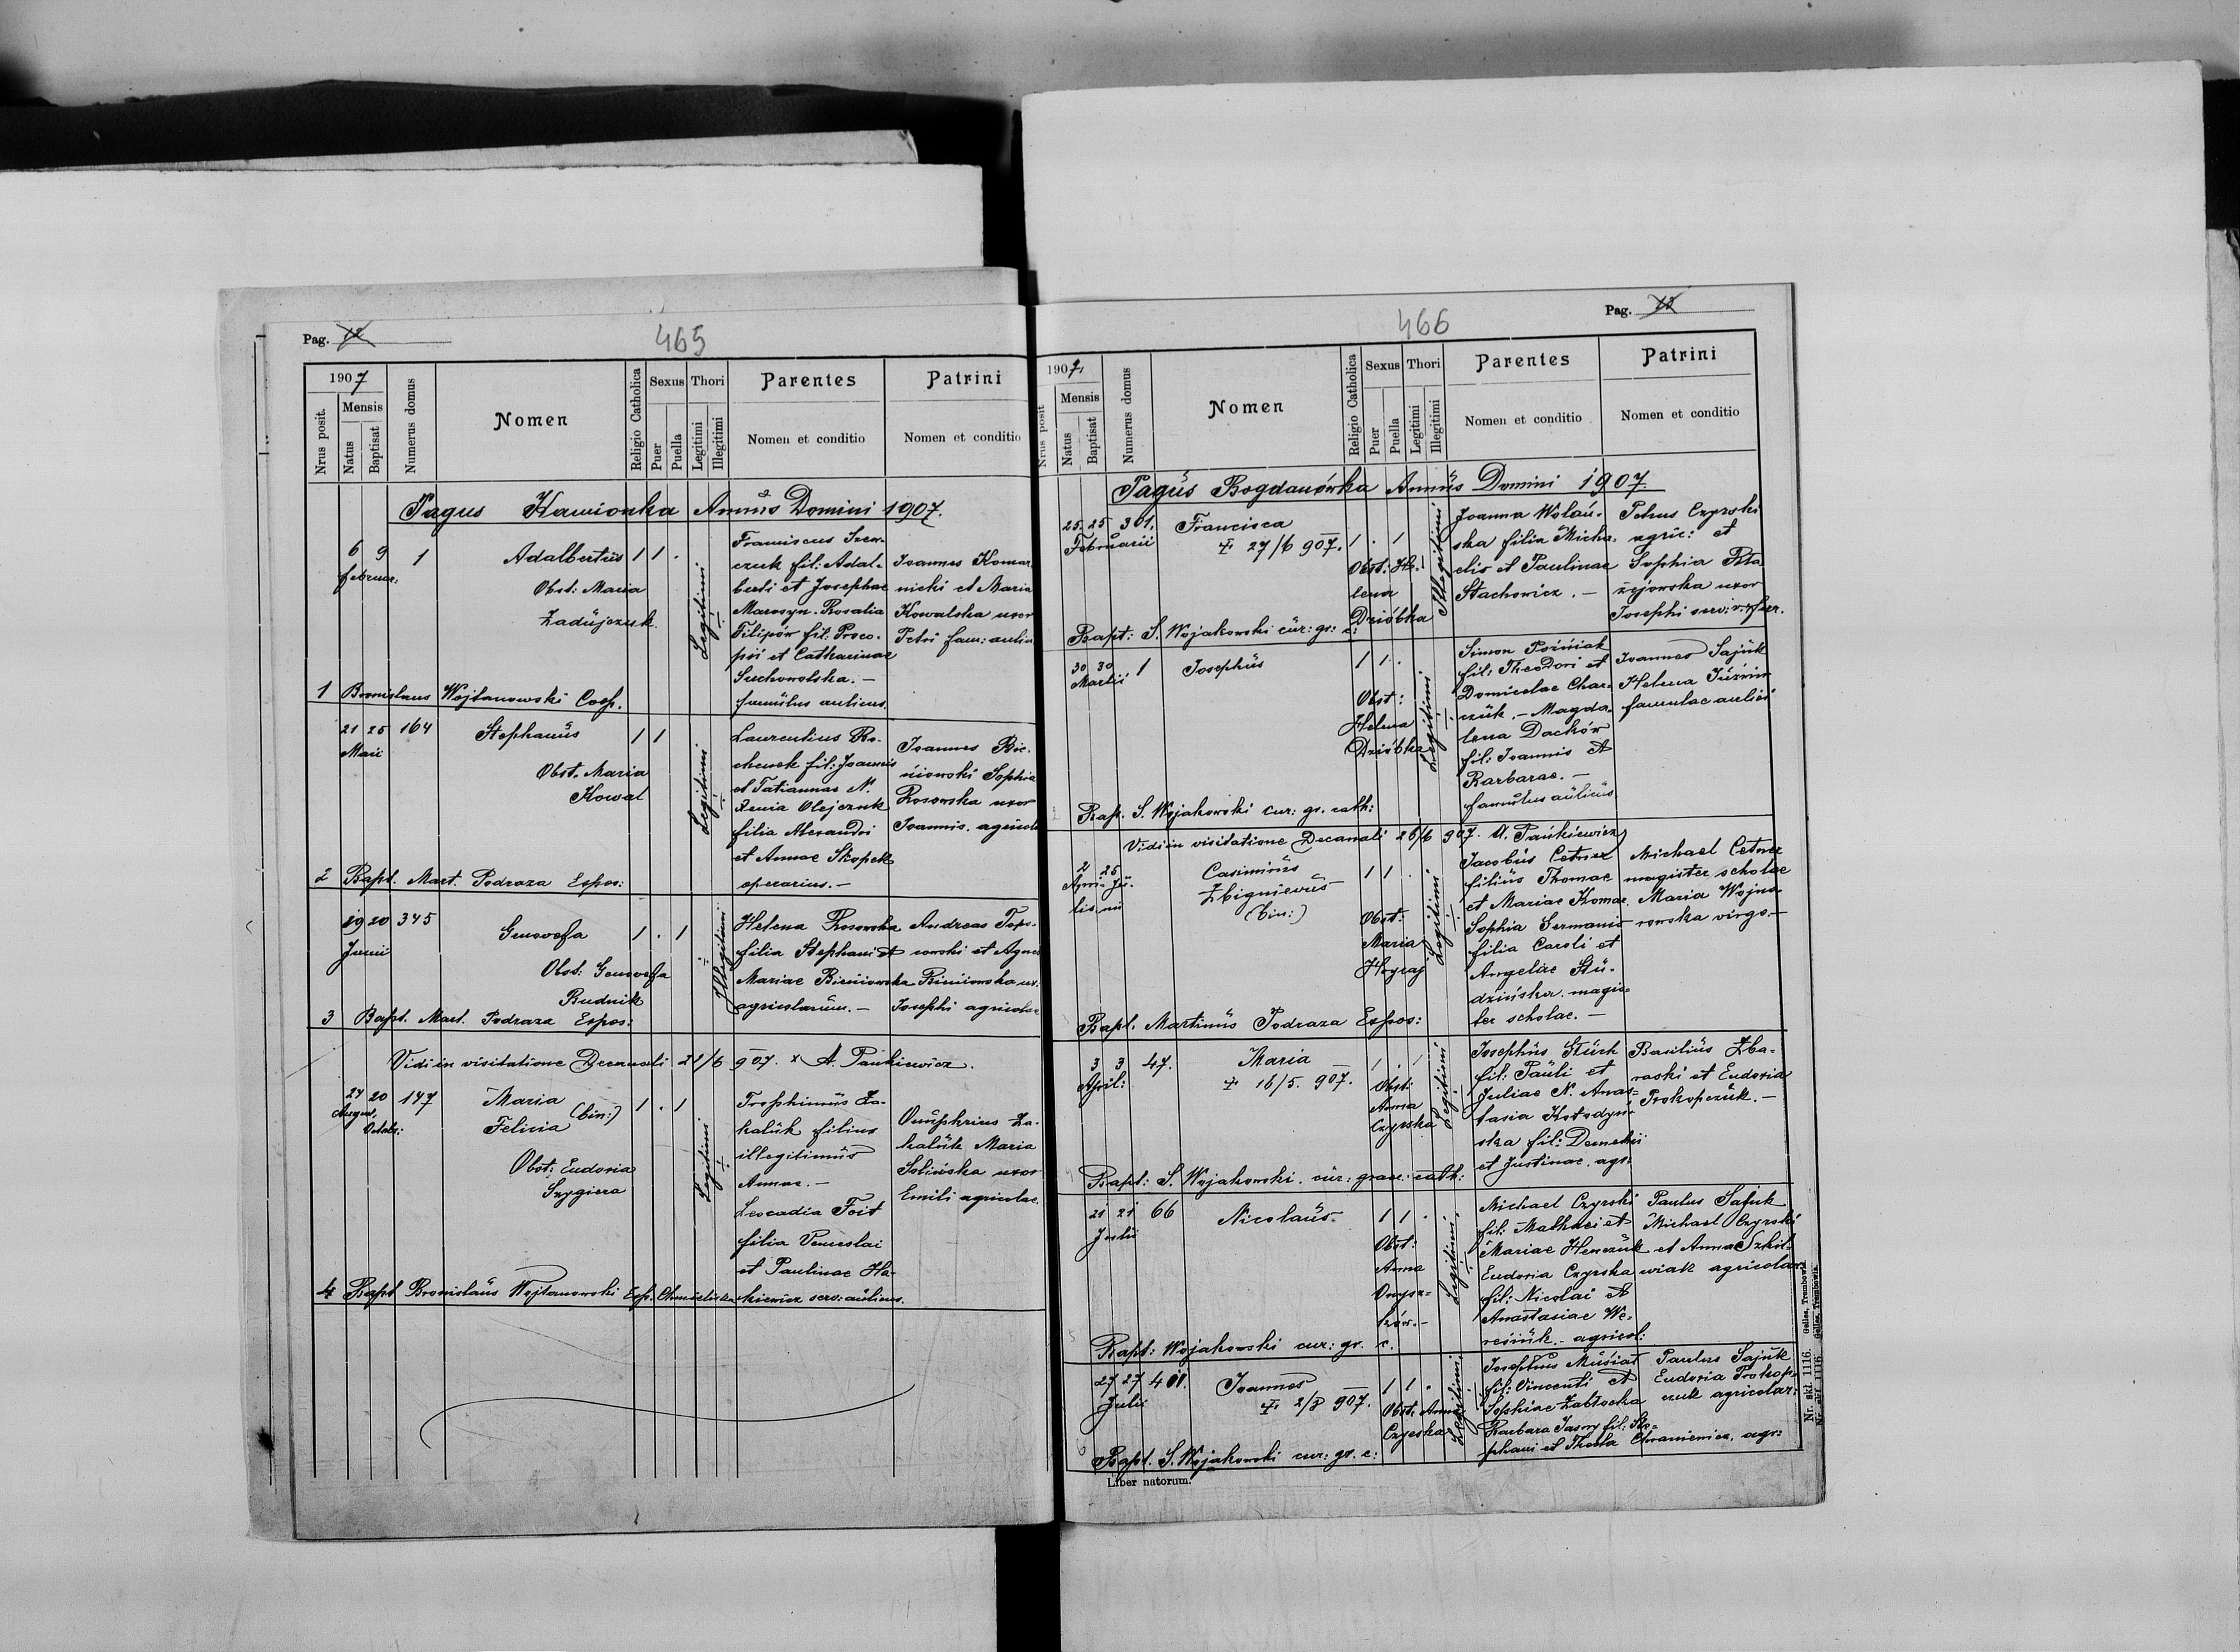 Pag. 12
465
1907
Nrus posit.
Mensis
Natus
Baptisat
Numerus domus
Nomen
Religio Catholica
Sexus
Puer
Puella
Thori
Legitimi
Illegitimi
Parentes
Nomen et conditio
Patrini
Nomen et conditio
Pagus Kamionka Annus Domini 1907.
6 9 1 Adalbertus 1 1 .
februar.
Obst: Maria
Zadujczuk.
Legitimi
Franciscus Szew-
czuk fil: Adal-
berti et Josephae
Marosyn. Rosalia
Filipów fil: Proco-
pii et Catharinae
Suchowolska. —
famulus aulicus.
Joannes Komar
nicki et Maria
Kowalska uxor
Petri fam: aulic
1 Bronislaus Wojtanowski Coop.
21 25 164 Stephanus 1 1
Maii
Obst. Maria
Kowal
Legitimi
Laurentius Bo-
chenek fil: Joannis
et Tatiannae N.
Xenia Olejczuk
filia Alexandri
et Annae Skopek
operarius. —
Joannes Bie-
niowski Sophia
Rosowska uxor
Joannis. agricol
2 Bapt. Mart. Podraza Expos:
19 20 345 Genovefa 1 . 1
Junii
Obst: Genovefa
Rudnik
Illegitimi
Helena Rosowska
filia Stephani et
Mariae Bieniowska
agricolarum. —
Andreas Topo-
rowski et Agnes
Bieniowska ux.
Josephi agricolae
3 Bapt. Mart. Podraza Expos:
Vidi in visitatione Decanali 21/6 907. x A. Pankiewicz.
27 20 147 Maria
August. Octobr:
Felicia (bin:) 1 . 1
Obst: Eudoxia
Szygiera
Legitimi
Trophimus Za-
kaluk filius
illegitimus
Annae. —
Leocadia Foit
filia Venceslai
et Paulinae Ha-
kiewicz serv: aulicus.
Onuphrius Za-
kaluk Maria
Solińska uxor
Emili agricolae.
4 Bapt Bronislaus Wojtanowski Exp. Chmieliska
Pag. 12
466
1907.
Nrus posit
Mensis
Natus
Baptisat
Numerus domus
Nomen
Religio Catholica
Sexus
Puer
Puella
Thori
Legitimi
Illegitimi
Parentes
Nomen et conditio
Patrini
Nomen et conditio
Pagus Bogdanówka Annus Domini 1907.
25. 25 301. Francisca
Februarii
27/6 907. 1 . 1
Obst: He-
lena
Dzióbka
Illegitimi
Joanna Wolań-
ska filia Micha-
elis et Paulinae
Stachowicz. —
Petrus Czyrski
agric: et
Sophia Bła
żejowska uxor
Josephi
Bapt: S. Wojakowski cur: gr: c:
30 30 1 Josephus 1 1 .
Martii
Obst:
Helena
Dzióbka
Legitimi
Simon Poźniak
fil: Theodori et
Domicelae Char-
czuk. — Magda-
lena Dachów
fil: Joannis et
Barbarae. —
famulus aulicus
Joannes Sajuk
Helena
famulae aulici
2 Bap. S. Wojakowski cur: gr. cath:
Vidi in visitatione Decanali 26/6 907. A. Pankiewicz
2 25 Casimirus
Apri- Ju-
lis nii
Zbignievus
(bin:) 1 1 .
Obst:
Maria
Hograj
Legitimi
Jacobus Cetnar
filius Thomae
et Mariae Komar.
Sophia Germanis
filia Caroli et
Angelae Stu-
dzińska. magis-
ter scholae. —
Michael Cetnar
magister scholae
Maria Wojna-
rowska virgo. —
Bapt. Martinus Podraza Expos:
3 3 47. Maria 1 . 1
April:
16/5. 907.
Obst:
Anna
Czyrska
Legitimi
Josephus Sturk
fil: Pauli et
Juliae N. Anas-
tasia Kołodyń-
ska fil: Demetrii
et Justinae. agr:
Basilius Zba-
raski et Eudoxia
Prokopczuk. —
Bapt: S. Wojakowski. cur: graec: cath:
21 21 66 Nicolaus. 1 1 .
Julii
Obst:
Anna
Onysz-
ków. —
Legitimi.
Michael Czyrski
fil: Mathaei et
Mariae Henczuk
Eudoxia Czyrska
fil: Nicolai et
Anastasiae We-
resiuk. — agricol:
Paulus Sajuk
Michael Czyrski
et Anna Szkil-
wiak agricolar
5 Bapt: Wojakowski cur: gr. c.
27 27 401. Joannes 1 1 .
Julii
2/8 907.
Obst. Anna
Czyrska
Legitimi.
Josephus Musiał
fil: Vincenti et
Sophiae Zabłocka
Barbara Jasny fil: Ste-
phani et Thecla Chraniewicz. agr:
Paulus Sajuk
Eudoxia Prokop-
czuk agricolar:
6 Bapt. S. Wojakowski cur: gr. c:
Liber natorum.
Nr. skl. 1116. Gelles, Trembowla.
Nr. skl. 1116. Gelles, Trembowla.